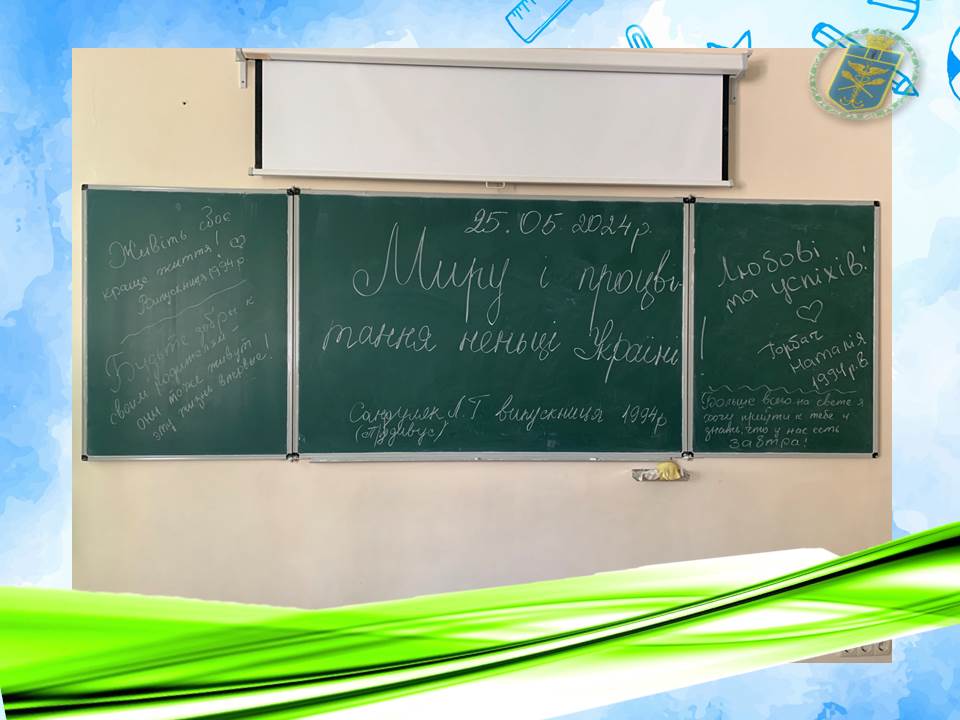 Живіть своє
краще життя! ♡
Випускниця 1994р
Будьте добры к
своим родителям –
они тоже живут
эту жизнь впервые!
25.05.2024р.
Миру і процві-
тання неньці Україні!
Сандуляк Л.Т випускниця 1994р
Любові
та успіхів!
♡
Горбач
Наталія
1994р.в
Больше всего на свете я
хочу прийти к тебе и
знать, что у нас есть
завтра!